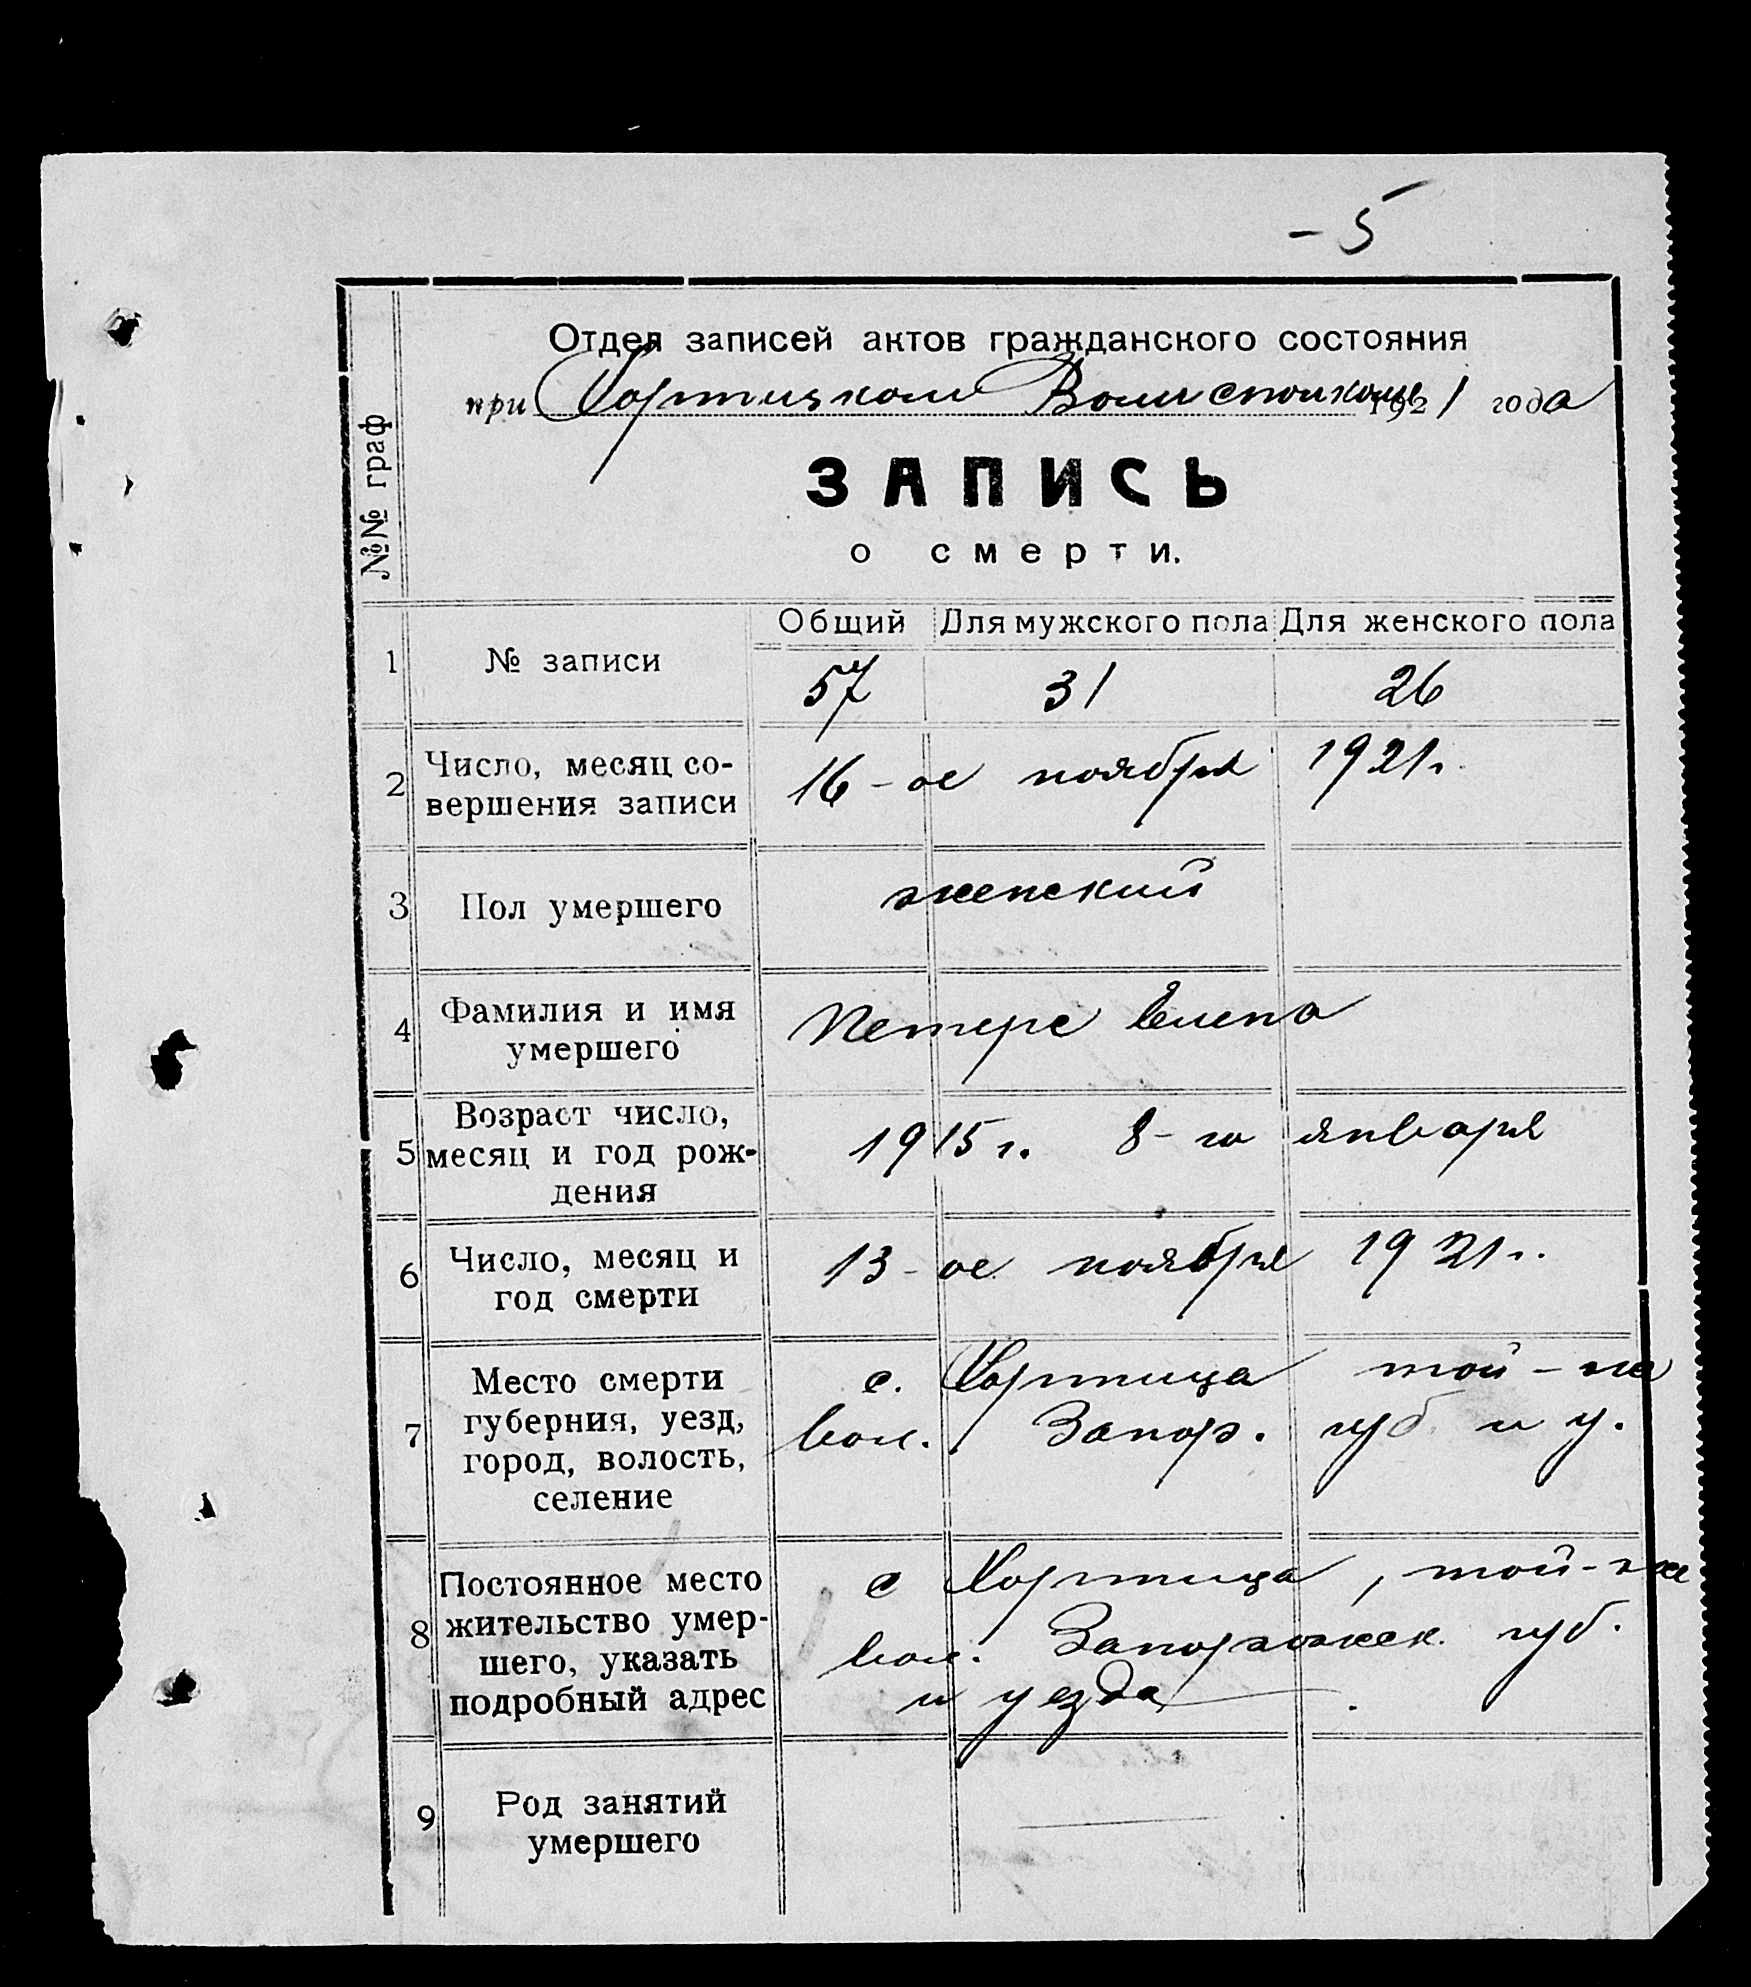 - 5
Отдел записей актов гражданского состояния
при Хортицком Волисполкоме 1921 года
№№ граф
ЗАПИСЬ
о смерти.
Общий Для мужского пола Для женского пола
1 № записи 57 31 26
2 Число, месяц со-
вершения записи
16-ое ноября 1921г.
3 Пол умершего женский
4 Фамилия и имя
умершего
Петерс Елена
5 Возраст число,
месяц и год рож-
дения
1915 г. 8-го января
6 Число, месяц и
год смерти
13-ое ноября 1921г.
7 Место смерти
губерния, уезд,
город, волость,
селение
с. Хортица той-же
вол. Запор. губ. и у.
8 Постоянное место
жительство умер-
шего, указать
подробный адрес
с Хортица, той-же
вол. Запорожск. губ.
и уезда.
9 Род занятий
умершего